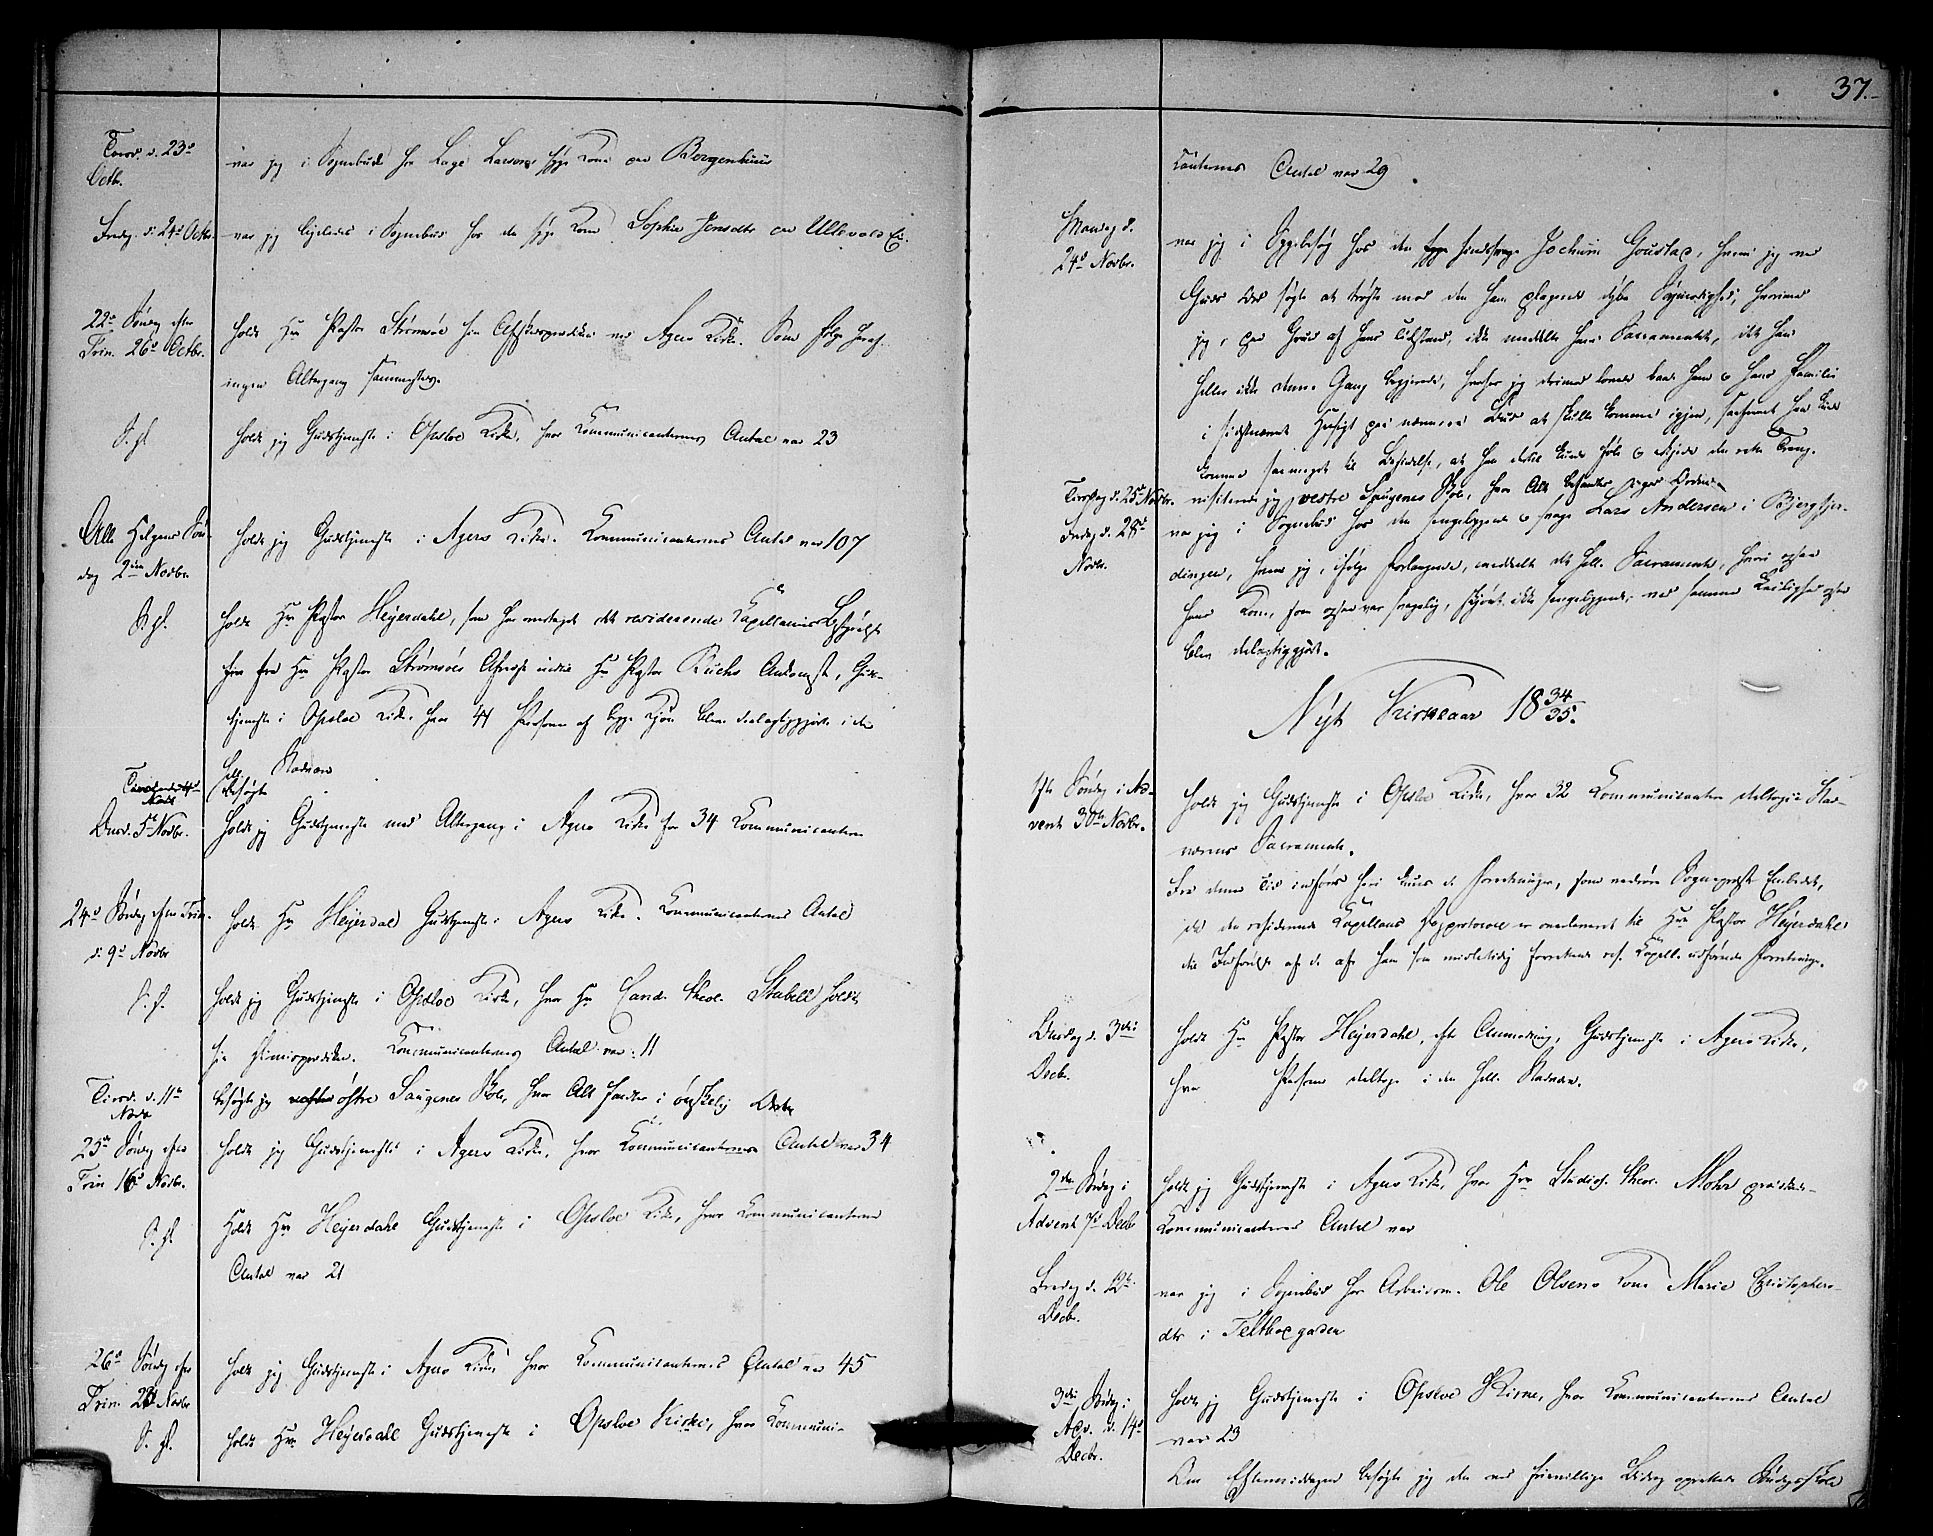 Torsd. d. 23de
Octb.
var jeg i Sognebud hos Lage Larsens syge Kone paa Borgenhuus
Fredag d. 24de Octbr.
var jeg ligeledes i Sognebud hos den syge Kone Sophia Jensdtr paa Ullevold Ei.
22de Søndag efter
Trin. 26de Octbr.
holdt Hr Pastor Strømsøe sin Afskedsprædiken ved Agers Kirke.
ingen Altergang sammesteds.
S. d.
holdt jeg Gudstjeneste i Opsloe Kirke, hvor Communicanternes Antal var 23
Alle Helgens Søn-
dag 2den Novbr.
holdt jeg Gudstjeneste i Agers Kirke. Communicanternes Antal var 107
S. d.
holdt Hr Pastor Heyerdahl, som har overtaget det residerende Capellanies Bestyrelse
fra Hr Pastor Strømsøes Afreise indtil Hr Pastor Ankomst, Guds-
tjeneste i Opsloe Kirke, hvor 44 Personer af begge Kjøn bleve deelagtiggjorte i den
hell. Nadvere
besøgte
Onsd. 5te Novbr.
holdt jeg Gudstjeneste med Altergang i Agers Kirke for 34 Communicantere
24de Søndag efter Trin.
d. 9de Novbr
holdt Hr Heyerdal Gudstjeneste i Agers Kirke. Communicanternes Antal
S. d.
holdt jeg Gudstjeneste i Opsloe Kirke, hvor Hr Cand. theol. Stabell holdt
sin Dimisprædiken. Communicanternes Antal var 11
Tirsd. d. 11te
Novbr
besøgte jeg østre Saugenes Skole, hvor Alt fandtes i ønskelig Orden
25de Søndag efter
Trin 16de Novbr.
holdt jeg Gudstjeneste i Agers Kirke, hvor Communicanternes Antal var 34
S. d.
holdt Hr Heyerdahl Gudstjeneste i Opsloe Kirke, hvor Communicanternes
Antal var 21
26de Søndag efter
Trin. 23 Novbr
holdt jeg Gudstjeneste i Agers Kirke hvor Communicanternes Antal var 45
S. d.
holdt Hr Heyerdahl Gudstjeneste i Opsloe Kirke, hvor Communi-
37.
canternes Antal var 29
Mandag d.
24de Novbr.
var jeg i Sygebesøg hos den sindssvage Jochum Goustad, hvem jeg ved
Guds Ord søgte at trøste mod den ham plagende dybe Sørgmodighed; hvorimod
jeg, paa Grund af hans Tilstand, ikke meddelte ham Sacramentet, det han
heller ikke denne Gang begjerede, hvorfor jeg derimod lovede baade ham og hans Familie
i sidstnævnte Hensigt paa nærmere Bud at skulle komme igjen, saasnart han kunde
komme saameget til Besindelse, at han dertil kunde føle og tilkjende den rette Trang.
Tirsdag d. 25de Novbr.
visiterede jeg vestre Saugenes Skole, hvor Alt befandtes i god Orden.
Fredag d. 28de
Novbr.
var jeg i Sognebud hos den sengeliggende og svage Lars Andersen i Bjergsfjer-
dingen, hvem jeg, ifølge Forlangende, meddelte det hell. Sacramente, hvori ogsaa
hans Kone, som ogsaa var svagelig, skjønt ikke sengeliggende, ved samme Leilighed ogsaa
blev delagtiggjort.
Nyt Kirkeaar 1834/35.
1ste Søndag i Ad-
vent 30te Novbr.
holdt jeg Gudstjeneste i Opslo Kirke, hvor 32 Communicantere deltoge i Nad-
verens Sacramente.
Fra denne Tid indføres heri kuns de Forretninger, som vedrøre Sognepræste Embedet,
da den residerende Capellans Dagprotocol er overleveret til Hr. Pastor Heyerdahl
til Indførelse af de af ham som midlertidig forrettende res. Capell. udførende Forretninger.
Onsdag d. 3die
Decbr.
holdt Hr Pastor Heyerdahl, efter Anmodning, Gudstjeneste i Agers Kirke,
hvor Personer deltoge i den hell. Nadvere.
2den Søndag i
Advent 7de Decbr
holdt jeg Gudstjeneste i Agers Kirke, hvor Hr. Studios. theol. Mohr prædikede.
Communicanternes Antal var
Fredag d. 12te
Decbr.
var jeg i Sognebud hos Arbeidsm. Ole Olsens Kone Marie Christophers-
dtr i Telthusgaden
3die Søndag i
Adv. d. 14de
Decbr.
holdt jeg Gudstjeneste i Opsloe Kirke, hvor Communicanternes Antal
var 23
Om Eftermiddagen besøgte jeg den ved frivillige Bidrag oprettede Søndagsskole